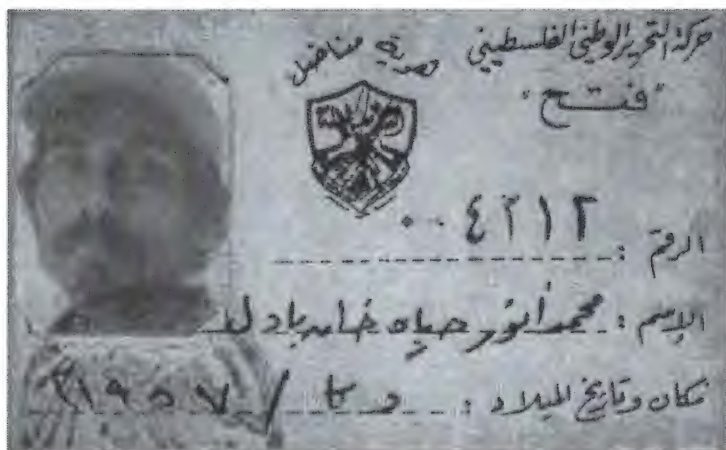 حركة التحرير الوطني الفلسطيني
"فتح"
هوية مناضل
الرقم : ٠٠٤٢١٢
الإسم : محمد أنور حياه خان بادل
مكان وتاريخ الميلاد : / ١٩٥٧م